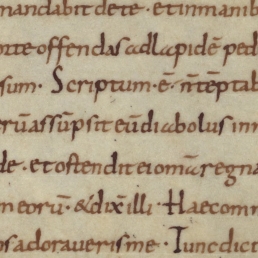 mandabit dete · etinmanib
orte offendas adlapidē ped
sum · Scriptum · ē · n̄tēptab
erū assūpsit eūdiabolus inm
de · et ostendit ei om̄a regna
m eorū · & dix̄ illi · Haecomn
os adoraveris me · Tunc dict